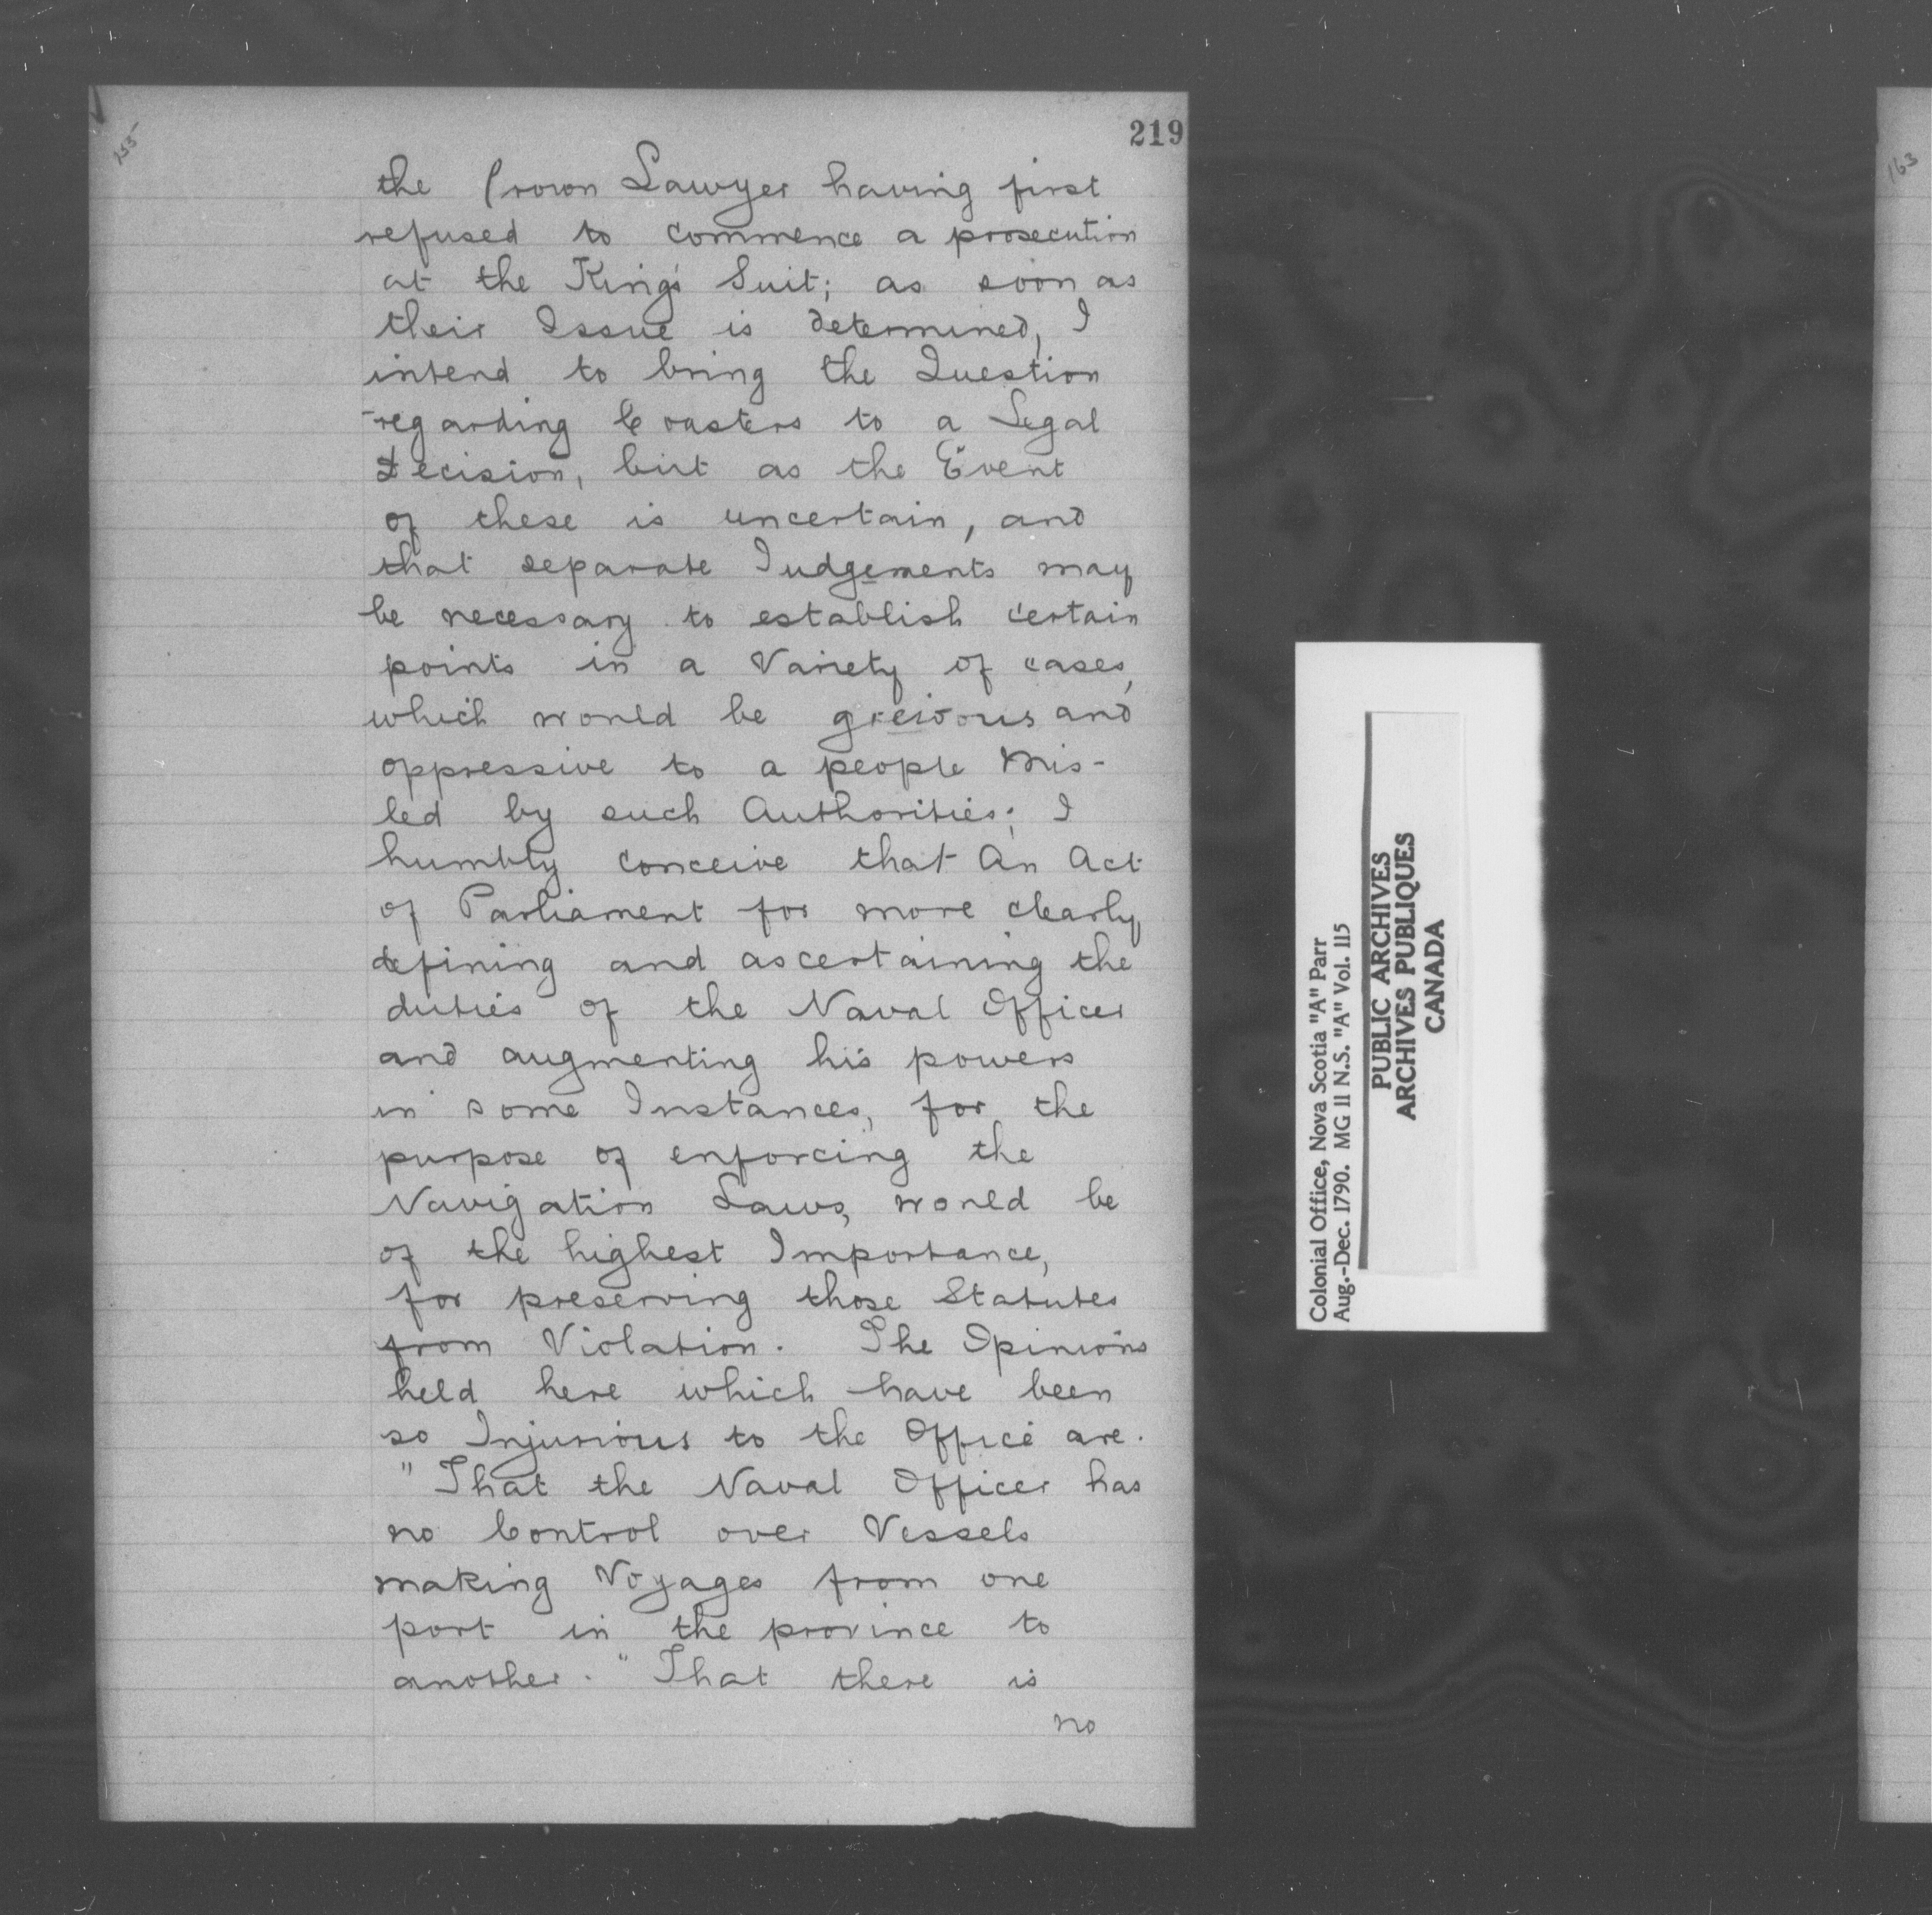 155
219
the Crown Lawyer having first
refused to commence a prosecution
at the King's Suit; as soon as
their Issue is determined, I
intend to bring the Question
regarding Coasters to a Legal
decision, but as the Event
of these is uncertain, and
that separate Judgements may
be necessary to establish certain
points in a Variety of cases,
which would be greivous and
oppressive to a people Mis-
led by such Authorities; I
humbly conceive that An Act
of Parliament for more clearly
defining and ascertaining the
duties of the Naval Officer
and augmenting his powers
in some Instances, for the
purpose of enforcing the
Navigation Laws, would be
of the highest Importance,
for preserving those Statutes
from Violation. The Opinions
held here which have been
so Injurious to the Office are.
"That the Naval Officer has
no Control over Vessels
making Voyages from one
port in the province to
another." That there is
no
Colonial Office, Nova Scotia "A" Parr
Aug.-Dec. 1790. MG 11 N.S. "A" Vol. 115
PUBLIC ARCHIVES
ARCHIVES PUBLIQUES
CANADA
163